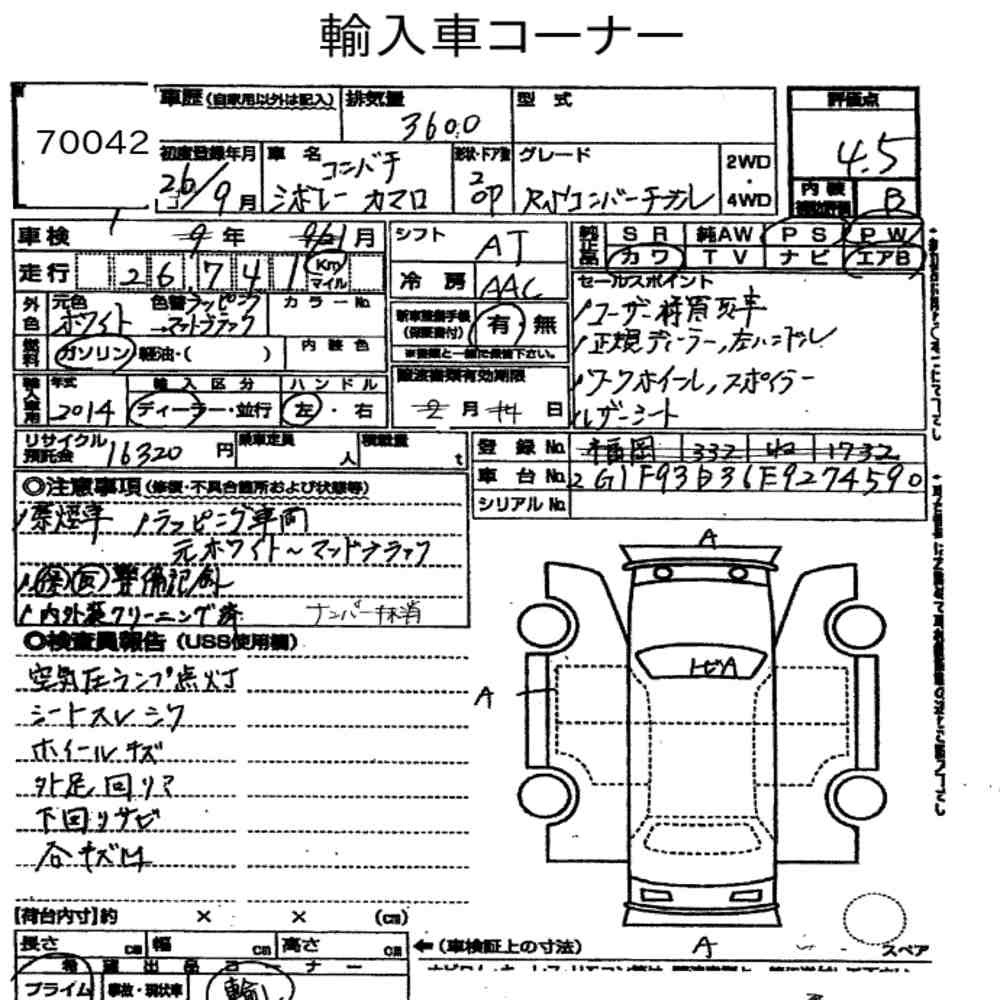 輸入車コーナー
70042
車歴 (自家用以外は記入) 排気量 3600 型式 評価点 4.5
初度登録年月 26/9月 車名 コンバチ シボレー カマロ 形状・ドア数 2 OP グレード RSコンバーチブル 2WD・4WD 内装 B
車検 9年 月 シフト AT 純正品 SR 純AW PS PW
走行 26,741 Km マイル 冷房 AAC カワ TV ナビ エアB
外色 元色 ホワイト 色替 ラッピング →マットブラック カラーNo. 新車整備手帳 (保証書付) 有・無 セールスポイント
※書類と一緒に後渡下さい。 ✓ユーザー様買取車
燃料 ガソリン 軽油・( ) 内装色 ✓正規ディーラー,左ハンドル
輸入車用 年式 2014 輸入区分 ディーラー・並行 ハンドル 左・右 譲渡書類有効期限 2月14日 ✓ワークホイール,スポイラー
レザーシート
リサイクル預託金 16320円 乗車定員 人 積載量 t 登録No. 福岡 332 1732
車台No. 2G1F93D36E9274590
シリアルNo.
◎注意事項 (修復・不具合箇所および状態等)
✓禁煙車 ✓ラッピング車両
元ホワイト～マットブラック
✓保 取 整備記録
✓内外装クリーニング済 ナンバー抹消
◎検査員報告 (USS使用欄)
空気圧ランプ点灯
シートスレ シワ
ホイールキズ
外足回リア
下回りサビ
各キズ凹
A
トビA
A
A
スペア
【荷台内寸】約 × × (cm)
長さ cm 幅 cm 高さ cm ←(車検証上の寸法)
希望出品コーナー
プライム 事故・現状車 輸入